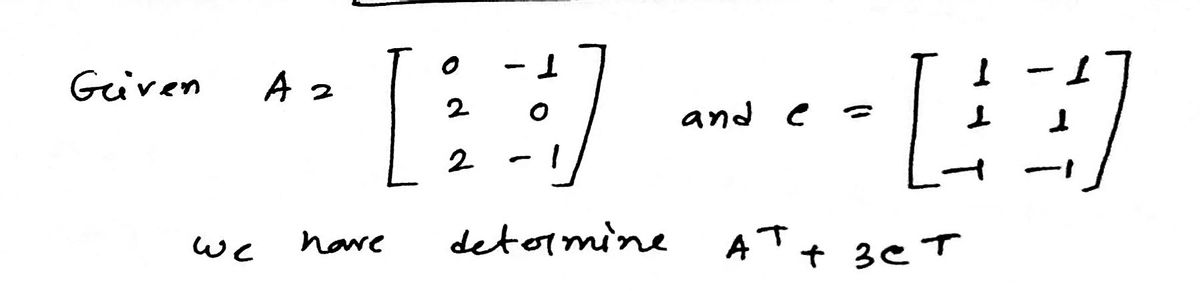 Given A = [ 0 -1 ; 2 0 ; 2 -1 ] and c = [ 1 -1 ; 1 1 ; -1 -1 ]
we have determine A^T + 3c^T